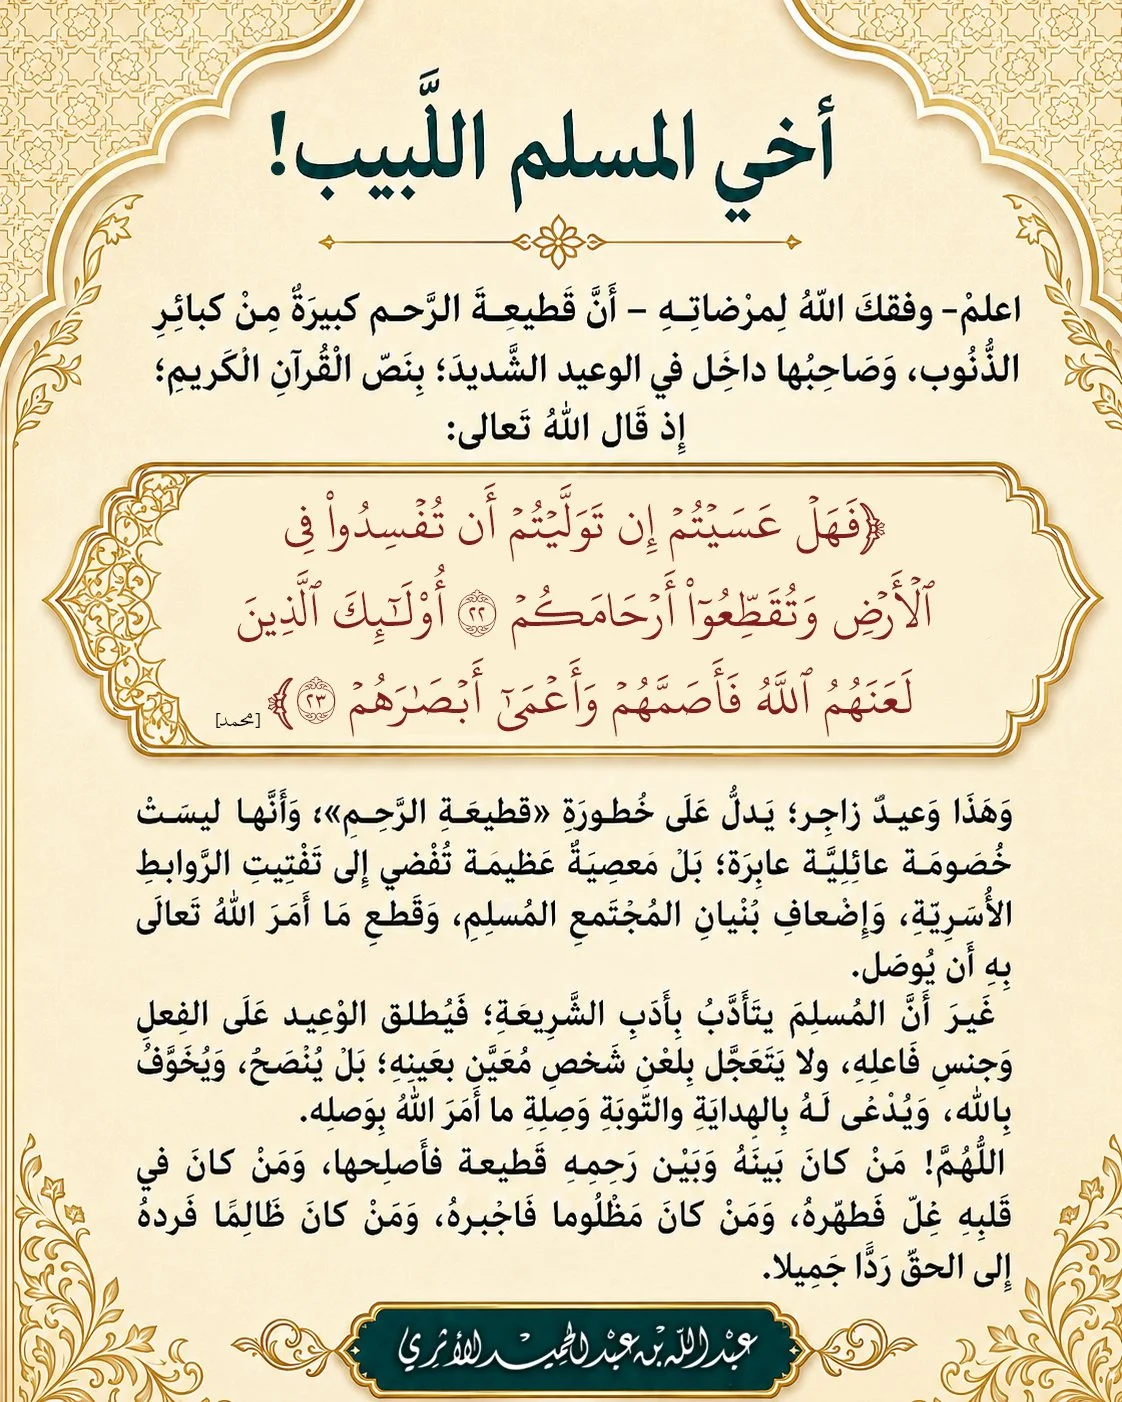 أخي المسلم اللَّبيب!
اعلمْ- وفقكَ اللّهُ لِمرْضاتِـهِ – أَنَّ قَطيعِـةَ الرَّحـم كبيرَةٌ مِـنْ كبائِـرِ
الذُّنُوب، وَصَاحِبُها داخَِل في الوعيد الشَّديدَ؛ بِنَصّ الْقُرآنِ الْكَريمِ؛
إِذ قَال اللهُ تَعالى:
﴿فَهَلۡ عَسَيۡتُمۡ إِن تَوَلَّيۡتُمۡ أَن تُفۡسِدُواْ فِى
ٱلۡأَرۡضِ وَتُقَطِّعُوٓاْ أَرۡحَامَكُمۡ ٢٢ أُوْلَـٰٓئِكَ ٱلَّذِينَ
لَعَنَهُمُ ٱللَّهُ فَأَصَمَّهُمۡ وَأَعۡمَىٰٓ أَبۡصَـٰرَهُمۡ ٢٣﴾ [محمد]
وَهَذَا وَعيـدٌ زاجِـر؛ يَـدلُّ عَلَى خُطـورَةِ «قطيعَـةِ الرَّحِـمِ»؛ وَأَنَّهـا ليسَـتْ
خُصَومَـة عائِلِيَّـة عابِرَة؛ بَلْ مَعصِيَةٌ عَظيمَـة تُفْضي إِلى تَفْتِيتِ الرَّوابـطِ
الأُسَـرِيّـةِ، وَإِضْعافِ بُنْيانِ المُجْتَمعِ المُسلِمِ، وَقَطعِ مَا أَمَرَ اللهُ تَعالَى
بِهِ أَن يُوصَل.
غَيرَ أَنَّ المُسلِمَ يتَأَدَّبُ بِأَدَبِ الشَّريعَـةِ؛ فَيُطلق الوْعِيـد عَلَى الفِعلِ
وَجنسِ فَاعلِهِ، ولا يَتَعَجَّل بِلعْنِ شَخصِ مُعَيَّن بعَينِهِ؛ بَلْ يُنْصَحُ، وَيُخَوَّفُ
بِالله، وَيُدْعَى لَـهُ بِالهدايَةِ والتّوبَةِ وَصِلِةِ ما أَمَرَ اللهُ بِوَصلِه.
اللُّهُمَّ! مَنْ كانَ بَينَهُ وَبَيْن رَحِمِهِ قَطيعة فأَصلِحها، وَمَنْ كانَ في
قَلبِهِ غِلّ فَطهّرهُ، وَمَنْ كانَ مَظْلُوما فَاجْبرهُ، وَمَنْ كانَ ظَالِمًا فَردهُ
إِلى الحقّ رَدًّا جَمِيلا.
عبْد اللّه بْن عبْد الحميد الأثري